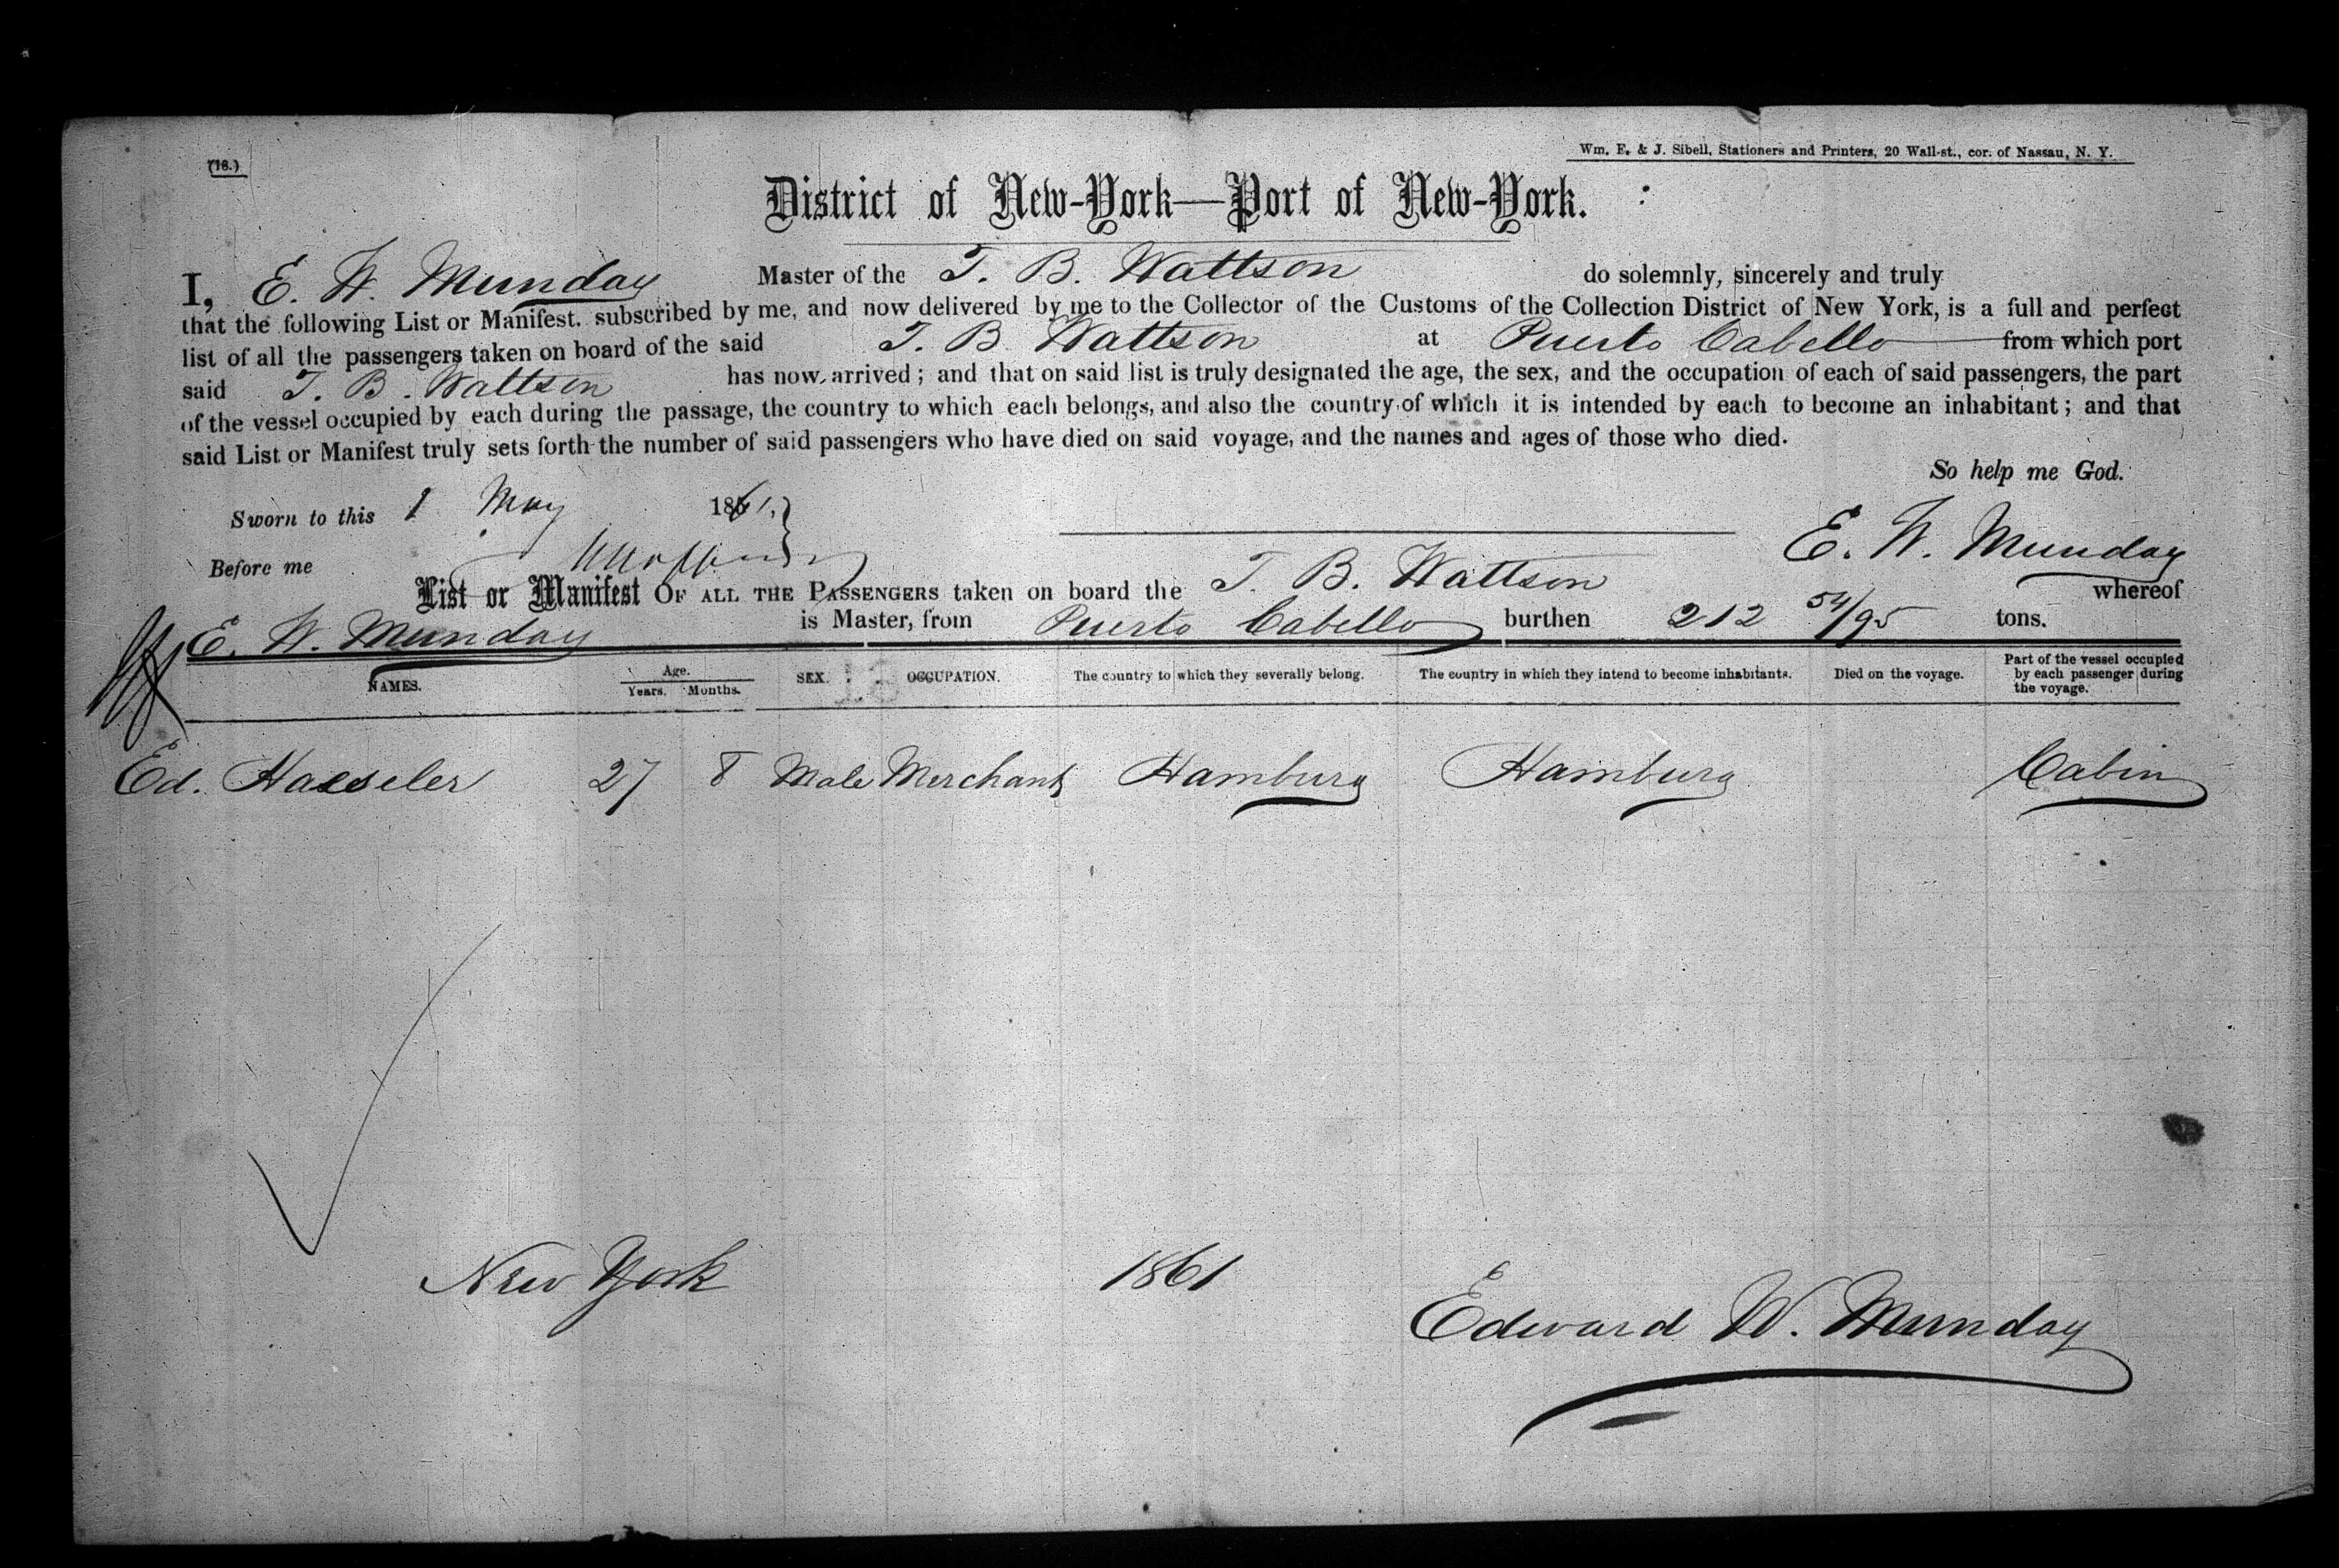 (18.)
Wm. E. & J. Sibell, Stationers and Printers, 20 Wall-st., cor. of Nassau, N. Y.
District of New-York—Port of New-York.
I, E. W. Munday Master of the T. B. Wattson do solemnly, sincerely and truly
that the following List or Manifest. subscribed by me, and now delivered by me to the Collector of the Customs of the Collection District of New York, is a full and perfect
list of all the passengers taken on board of the said T. B. Wattson at Puerto Cabello from which port
said T. B. Wattson has now arrived; and that on said list is truly designated the age, the sex, and the occupation of each of said passengers, the part
of the vessel occupied by each during the passage, the country to which each belongs, and also the country of which it is intended by each to become an inhabitant; and that
said List or Manifest truly sets forth the number of said passengers who have died on said voyage, and the names and ages of those who died.
So help me God.
Sworn to this 1 May 1861.
E. W. Munday
Before me
List or Manifest OF ALL THE PASSENGERS taken on board the T. B. Wattson whereof
E. W. Munday is Master, from Puerto Cabello burthen 212 54/95 tons.
NAMES. Age. Years. Months. SEX. OCCUPATION. The country to which they severally belong. The country in which they intend to become inhabitants. Died on the voyage. Part of the vessel occupied by each passenger during the voyage.
Ed. Haeseler 27 8 Male Merchant Hamburg Hamburg Cabin
New York 1861
Edward W. Munday